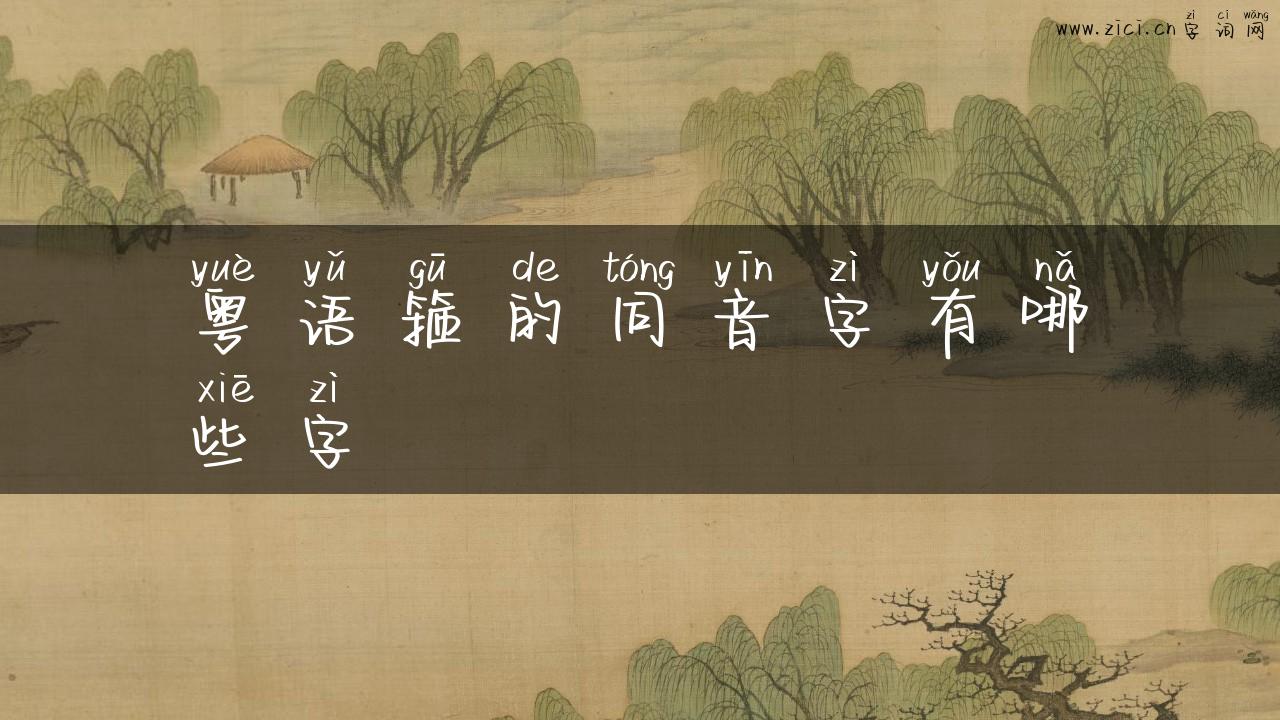 zì cí wǎng
www.zici.cn 字词网
yuè yǔ gū de tóng yīn zì yǒu nǎ
粤语箍的同音字有哪
xiē zì
些字